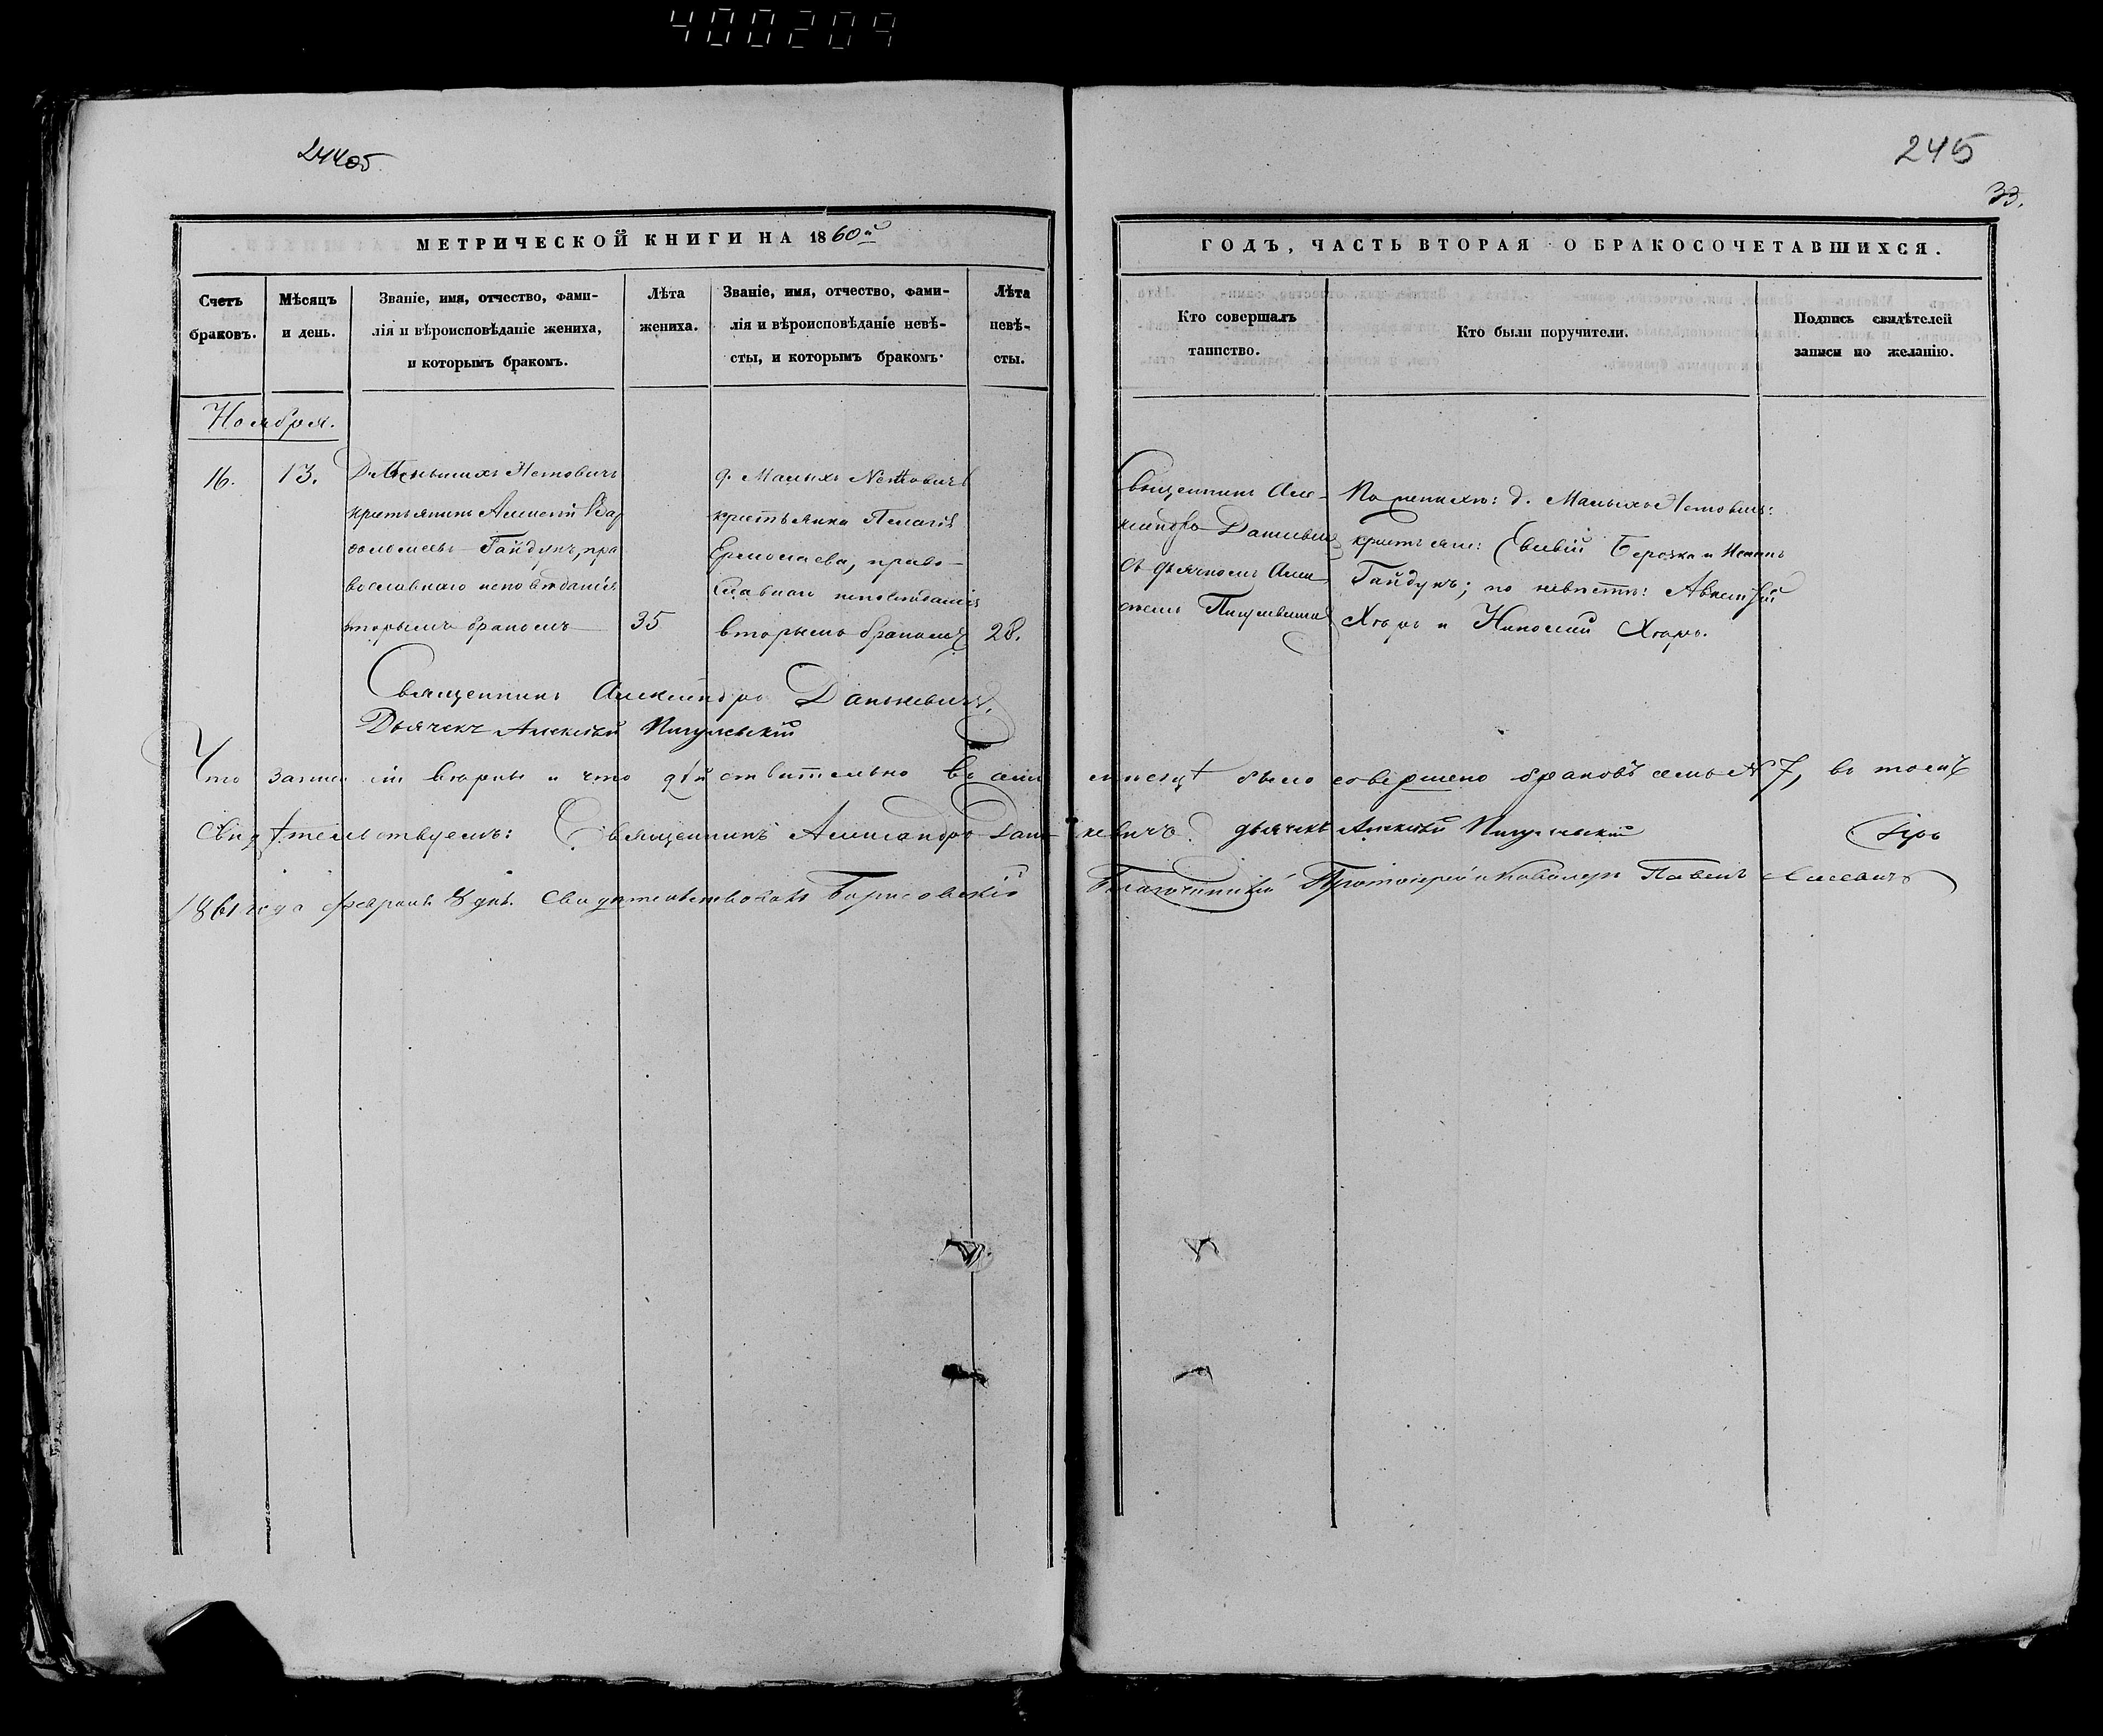 400209
244об
245
33.
МЕТРИЧЕСКОЙ КНИГИ НА 1860й
ГОДЪ, ЧАСТЬ ВТОРАЯ О БРАКОСОЧЕТАВШИХСЯ.
Счетъ
браковъ.
Мѣсяцъ
и день.
Званіе, имя, отчество, фами-
лія и вѣроисповѣданіе жениха,
и которымъ бракомъ.
Лѣта
жениха.
Званіе, имя, отчество, фами-
лія и вѣроисповѣданіе невѣ-
сты, и которымъ бракомъ.
Лѣта
невѣ-
сты.
Кто совершалъ
таинство.
Кто были поручители.
Подпись свидѣтелей
записи по желанію.
Ноября.
16.
13.
крестьянинъ Алексій Вар
ѳоломеевъ Гайдукъ, пра
вославнаго исповѣданія
вторымъ бракомъ
35
д. Малыхъ
крестьянка Пелагія
Ермолаева, право-
славнаго исповѣданія
вторымъ бракомъ
28.
Священникъ Але-
ксандръ Данкевичъ
съ дьячкомъ Алек
сѣемъ
По женихѣ: д. Малыхъ
крестьяне: Березка и
Гайдукъ; по невѣстѣ: Авксентій
Хворъ и Николай Хворъ.
Священникъ Александръ Данкевичъ.
Дьячекъ Алексѣй Пигулевскій
Что записи сіи вѣрны и что дѣйствительно въ семъ мѣсяцѣ было совершено браковъ семь № 7, въ томъ
свидѣтельствуемъ: Священникъ Александръ Данкевичъ. дьячекъ Алексѣй Пигулевскій
1861 года Февраля 8 дня свидѣтельствовалъ Борисовскій Благочинный Протоіерей и Кавалеръ Павелъ